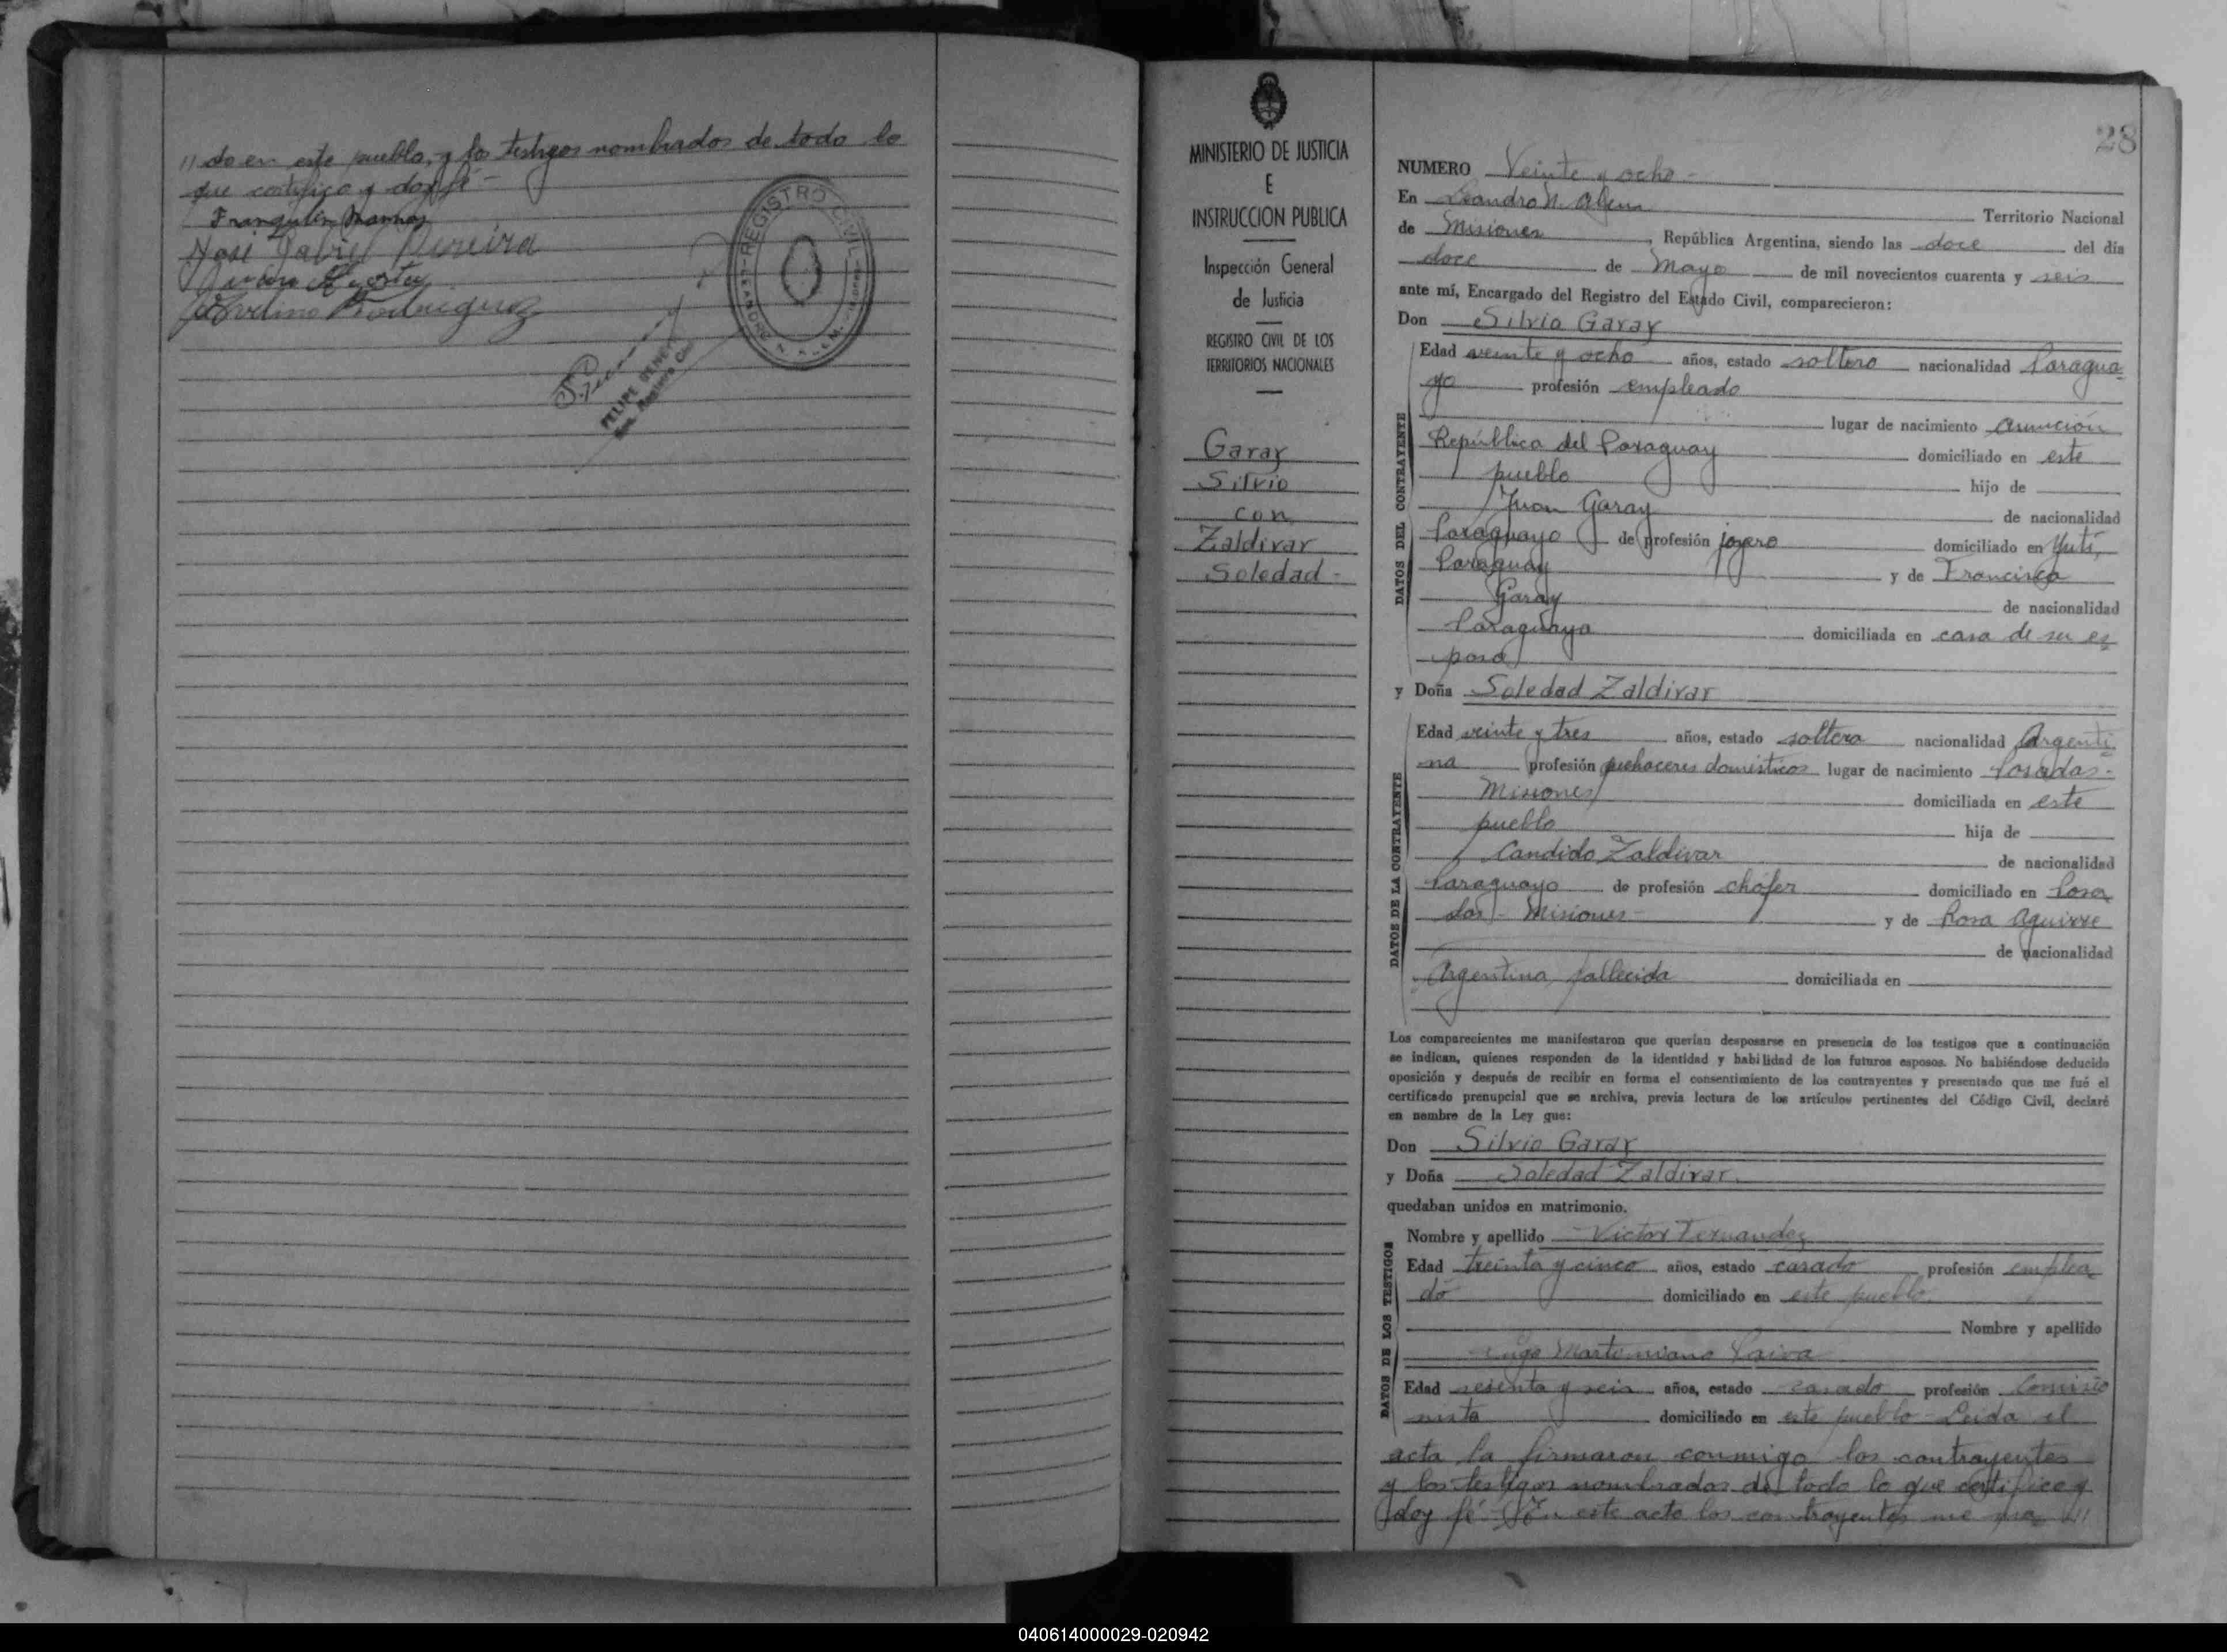 // do en este pueblo, y los testigos nombrados de todo lo
que certifico y doy fé -
José Gabriel Pereira
Avelino Rodriguez
REGISTRO CIVIL
LEANDRO N. ALEM
FELIPE
MINISTERIO DE JUSTICIA
E
INSTRUCCION PUBLICA
Inspección General
de Justicia
REGISTRO CIVIL DE LOS
TERRITORIOS NACIONALES
Garay
Silvio
con
Zaldivar
Soledad -
28
NUMERO Veinte y ocho -
En Leandro N. Alem Territorio Nacional
de Misiones, República Argentina, siendo las doce del día
doce de Mayo de mil novecientos cuarenta y seis
ante mí, Encargado del Registro del Estado Civil, comparecieron:
Don Silvio Garay
DATOS DEL CONTRAYENTE
Edad veinte y ocho años, estado soltero nacionalidad Paragua-
yo profesión empleado
lugar de nacimiento Asunción
República del Paraguay domiciliado en este
pueblo hijo de
Juan Garay de nacionalidad
Paraguayo de profesión joyero domiciliado en Yuti,
Paraguay y de Francisca
Garay de nacionalidad
Paraguaya domiciliada en casa de su es
poso
y Doña Soledad Zaldivar
DATOS DE LA CONTRAYENTE
Edad veinte y tres años, estado soltera nacionalidad Argenti
na profesión quehaceres domésticos lugar de nacimiento Posadas -
Misiones domiciliada en este
pueblo hija de
Candido Zaldivar de nacionalidad
Paraguayo de profesión chófer domiciliado en Posa
das - Misiones - y de Rosa Aguirre
de nacionalidad
Argentina, fallecida domiciliada en
Los comparecientes me manifestaron que querían desposarse en presencia de los testigos que a continuación
se indican, quienes responden de la identidad y habilidad de los futuros esposos. No habiéndose deducido
oposición y después de recibir en forma el consentimiento de los contrayentes y presentado que me fué el
certificado prenupcial que se archiva, previa lectura de los artículos pertinentes del Código Civil, declaré
en nombre de la Ley que:
Don Silvio Garay
y Doña Soledad Zaldivar.
quedaban unidos en matrimonio.
DATOS DE LOS TESTIGOS
Nombre y apellido Victor Fernandez
Edad treinta y cinco años, estado casado profesión emplea
do domiciliado en este pueblo.
Nombre y apellido
Martiniano Paiva
Edad sesenta y seis años, estado casado profesión Comisio
nista domiciliado en este pueblo - Leida el
acta la firmaron conmigo los contrayentes
y los testigos nombrados de todo lo que certifico y
doy fé - En este acto los contrayentes me ma ///
040614000029-020942